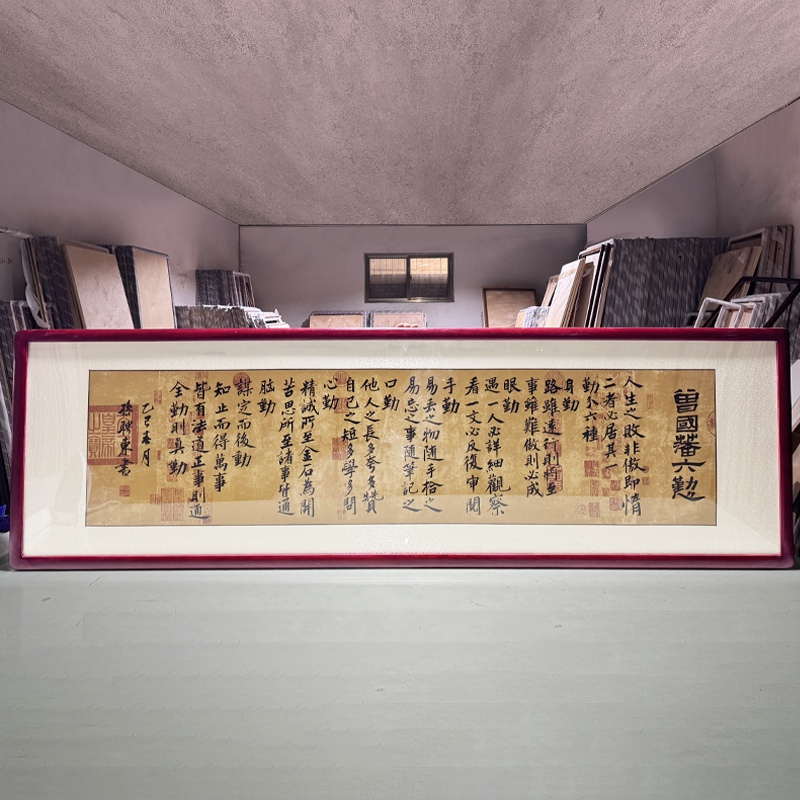 曾國藩六勤
人生之敗非傲即惰
二者必居其一
勤分六種
身勤
路雖遠行則將至
事雖難做則必成
眼勤
遇一人必詳細觀察
看一文必反復審閱
手勤
易丢之物隨手拾之
易忘之事隨筆記之
口勤
他人之長多夸多贊
自己之短多學多問
心勤
精誠所至金石為開
苦思所至諸事皆通
腦勤
謀定而後動
知止而得萬事
皆有法道正事則通
全勤則真勤
乙巳春月
孫聯東書